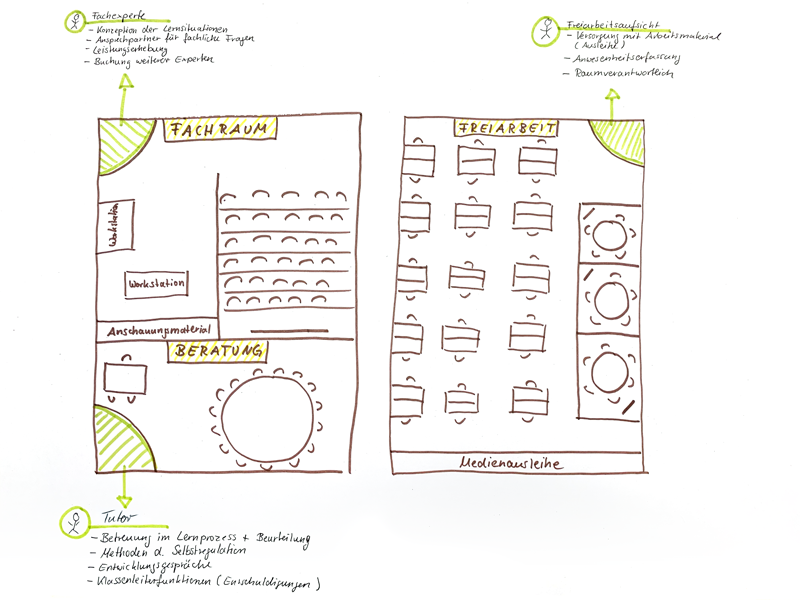 Fachexperte
- Konzeption der Lernsituationen
- Ansprechpartner für fachliche Fragen
- Leistungserhebung
- Buchung weiterer Experten
Freiarbeitsaufsicht
- Versorgung mit Arbeitsmaterial
(Ausleihe)
- Anwesenheitserfassung
- Raumverantwortlich
FACHRAUM
FREIARBEIT
Workstation
Workstation
Anschauungsmaterial
BERATUNG
Medienausleihe
Tutor
- Betreuung im Lernprozess + Beurteilung
- Methoden d. Selbstregulation
- Entwicklungsgespräche
- Klassenleiterfunktionen (Entschuldigungen)